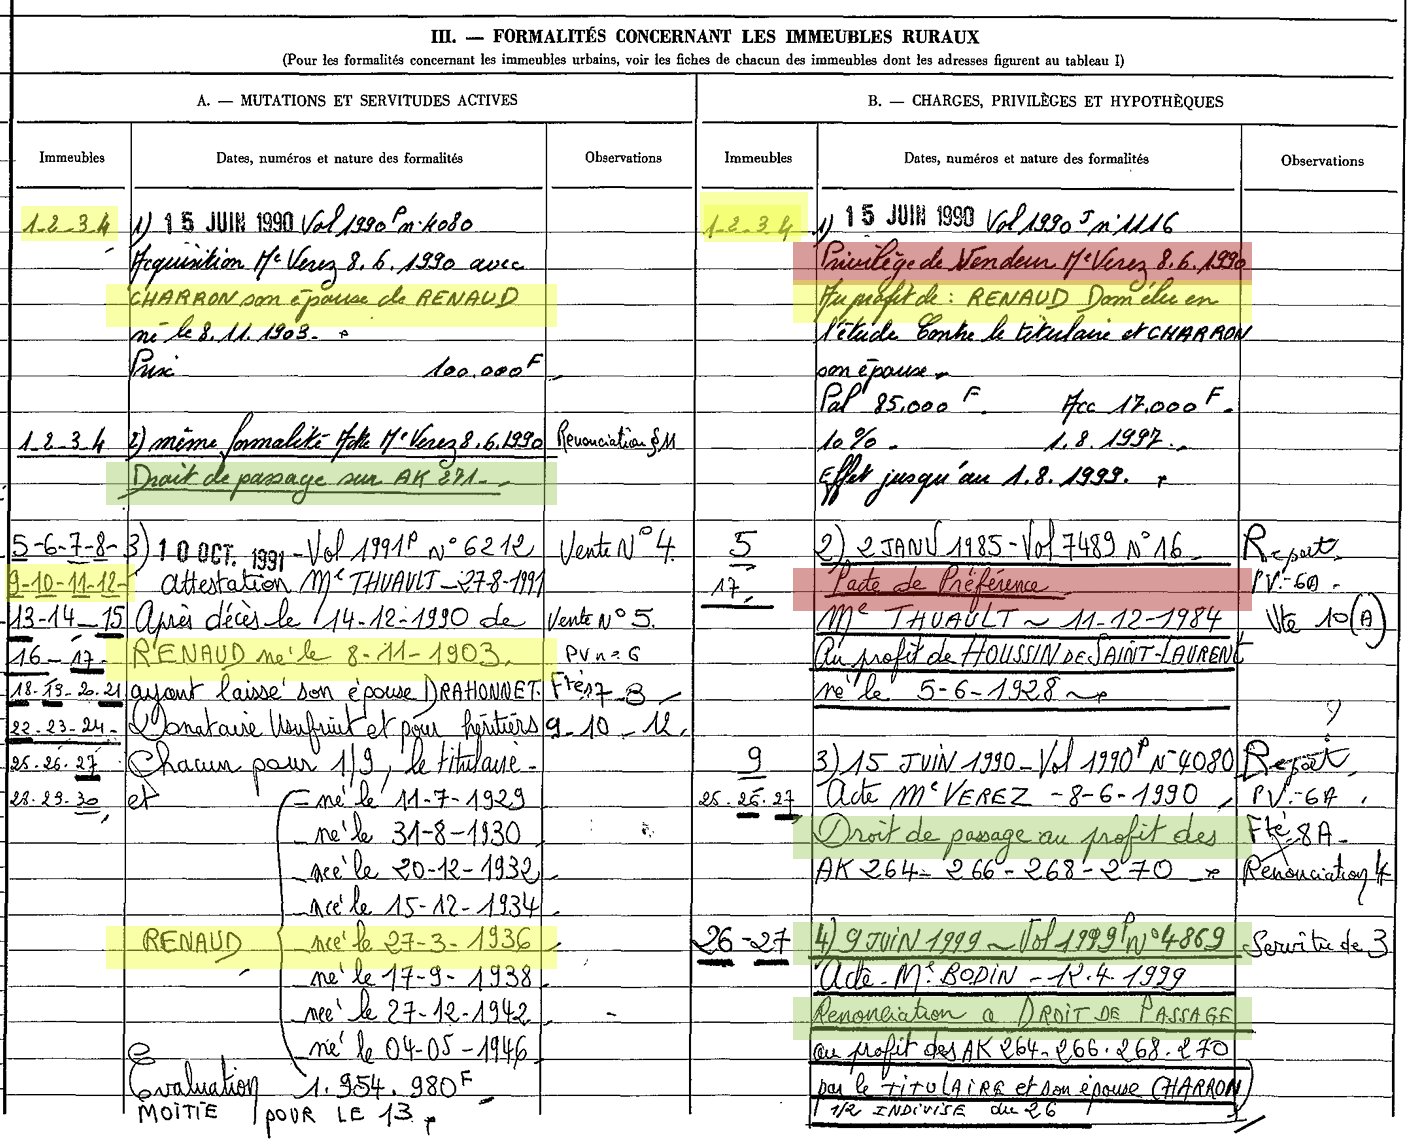 III. — FORMALITÉS CONCERNANT LES IMMEUBLES RURAUX
(Pour les formalités concernant les immeubles urbains, voir les fiches de chacun des immeubles dont les adresses figurent au tableau I)
A. — MUTATIONS ET SERVITUDES ACTIVES
Immeubles
Dates, numéros et nature des formalités
Observations
1-2-3-4
1) 15 JUIN 1990 Vol 1990 P n° 4080
Acquisition Me Verez 8.6.1990 avec
CHARRON son épouse de RENAUD
né le 8.11.1903.
Prix 100.000 F
1-2-3-4 2) même formalité Acte Me Verez 8.6.1990 Renonciation § 11
Droit de passage sur AK 271.
5-6-7-8- 3) 10 OCT. 1991 - Vol 1991P N° 6212 Vente N° 4.
9-10-11-12- Attestation Me THUAULT - 27-8-1991
13-14-15 Après décès le 14-12-1990 de Vente N° 5.
16-17- RENAUD né le 8-11-1903. PV n° 6
18-19-20-21 ayant laissé son épouse DRAHONNET. Ftés 7-8
22-23-24- Donataire Usufruit et pour héritiers 9-10-12.
25-26-27 Chacun pour 1/9, le titulaire -
28-29-30 et né le 11-7-1929
né le 31-8-1930
née le 20-12-1932
née le 15-12-1934
RENAUD née le 27-3-1936
né le 17-9-1938
née le 27-12-1942
né le 04-05-1946
Evaluation 1.954.980 F
MOITIE POUR LE 13.
B. — CHARGES, PRIVILÈGES ET HYPOTHÈQUES
Immeubles
Dates, numéros et nature des formalités
Observations
1-2-3-4
1) 15 JUIN 1990 Vol 1990 J n° 1116
Privilège de Vendeur Me Verez 8.6.1990
Au profit de : RENAUD Dom élu en
l'étude Contre le titulaire et CHARRON
son épouse.
Pal 85.000 F. Acc 17.000 F.
10% . 1.8.1997.
Effet jusqu'au 1.8.1999.
5 2) 2 JANV 1985 - Vol 7489 N° 16 Report
17, Pacte de Préférence PV.-6A -
Me THUAULT - 11-12-1984 Vte 10(A)
Au profit de HOUSSIN DE SAINT-LAURENT
né le 5-6-1928
9 3) 15 JUIN 1990 - Vol 1990P N° 4080 Report
25-26-27 Acte Me VEREZ - 8-6-1990 PV.-6A
Droit de passage au profit des Fté 8A -
AK 264 - 266 - 268 - 270 Renonciation 4
26-27 4) 9 JUIN 1999 - Vol 1999P N° 4869 Servitude 3
Acte Me BODIN - 12.4.1999
Renonciation à DROIT DE PASSAGE
au profit des AK 264-266-268-270
par le TITULAIRE et son épouse CHARRON
1/2 INDIVISE du 26